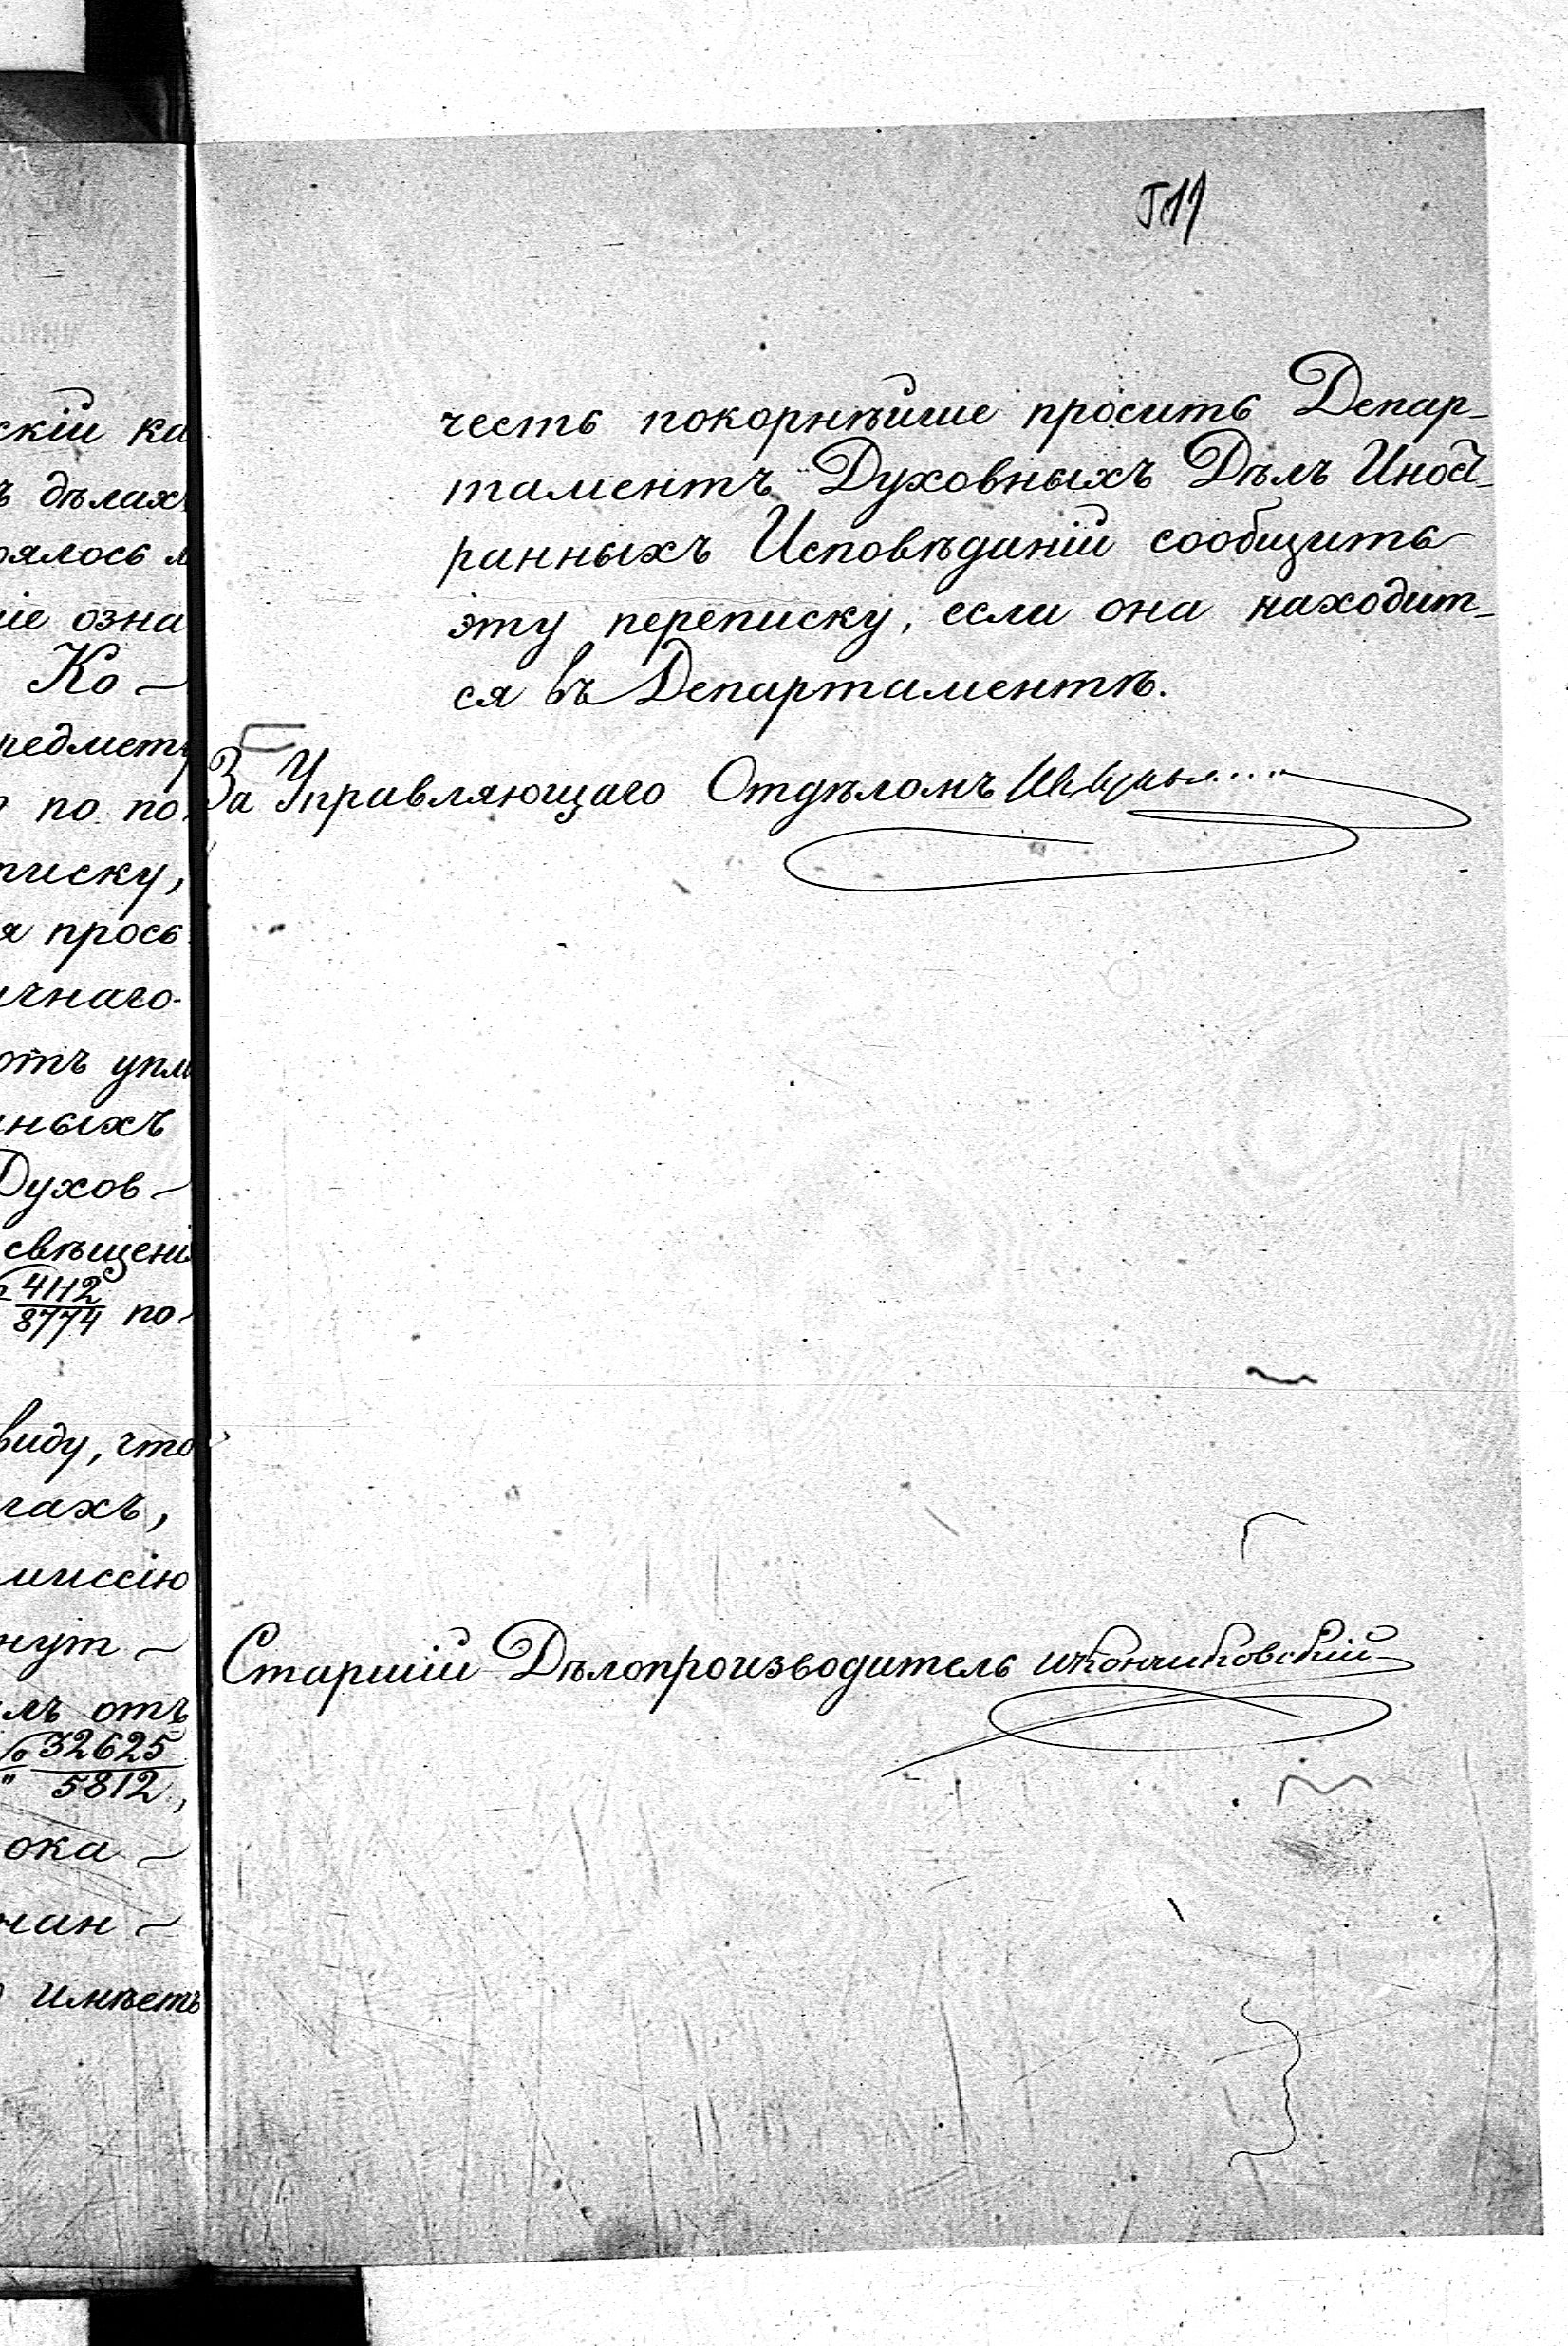 скій ка
ъ дѣлахъ
рялось
ніе озна
Ко-
редмету
по по
писку,
я прось
ичнаго
отъ упл
нныхъ
Духов-
свѣщенія
4112
8774 по-
виду, что
гахъ,
миссію
нут-
лъ отъ
32625
5812,
ока-
ман-
имѣетъ
честь покорнѣйше просить Депар-
таментъ Духовныхъ Дѣлъ Иност-
ранныхъ Исповѣданій сообщить
эту переписку, если она находит-
ся въ Департаментѣ.
За Управляющаго Отдѣломъ
Старшій Дѣлопроизводитель